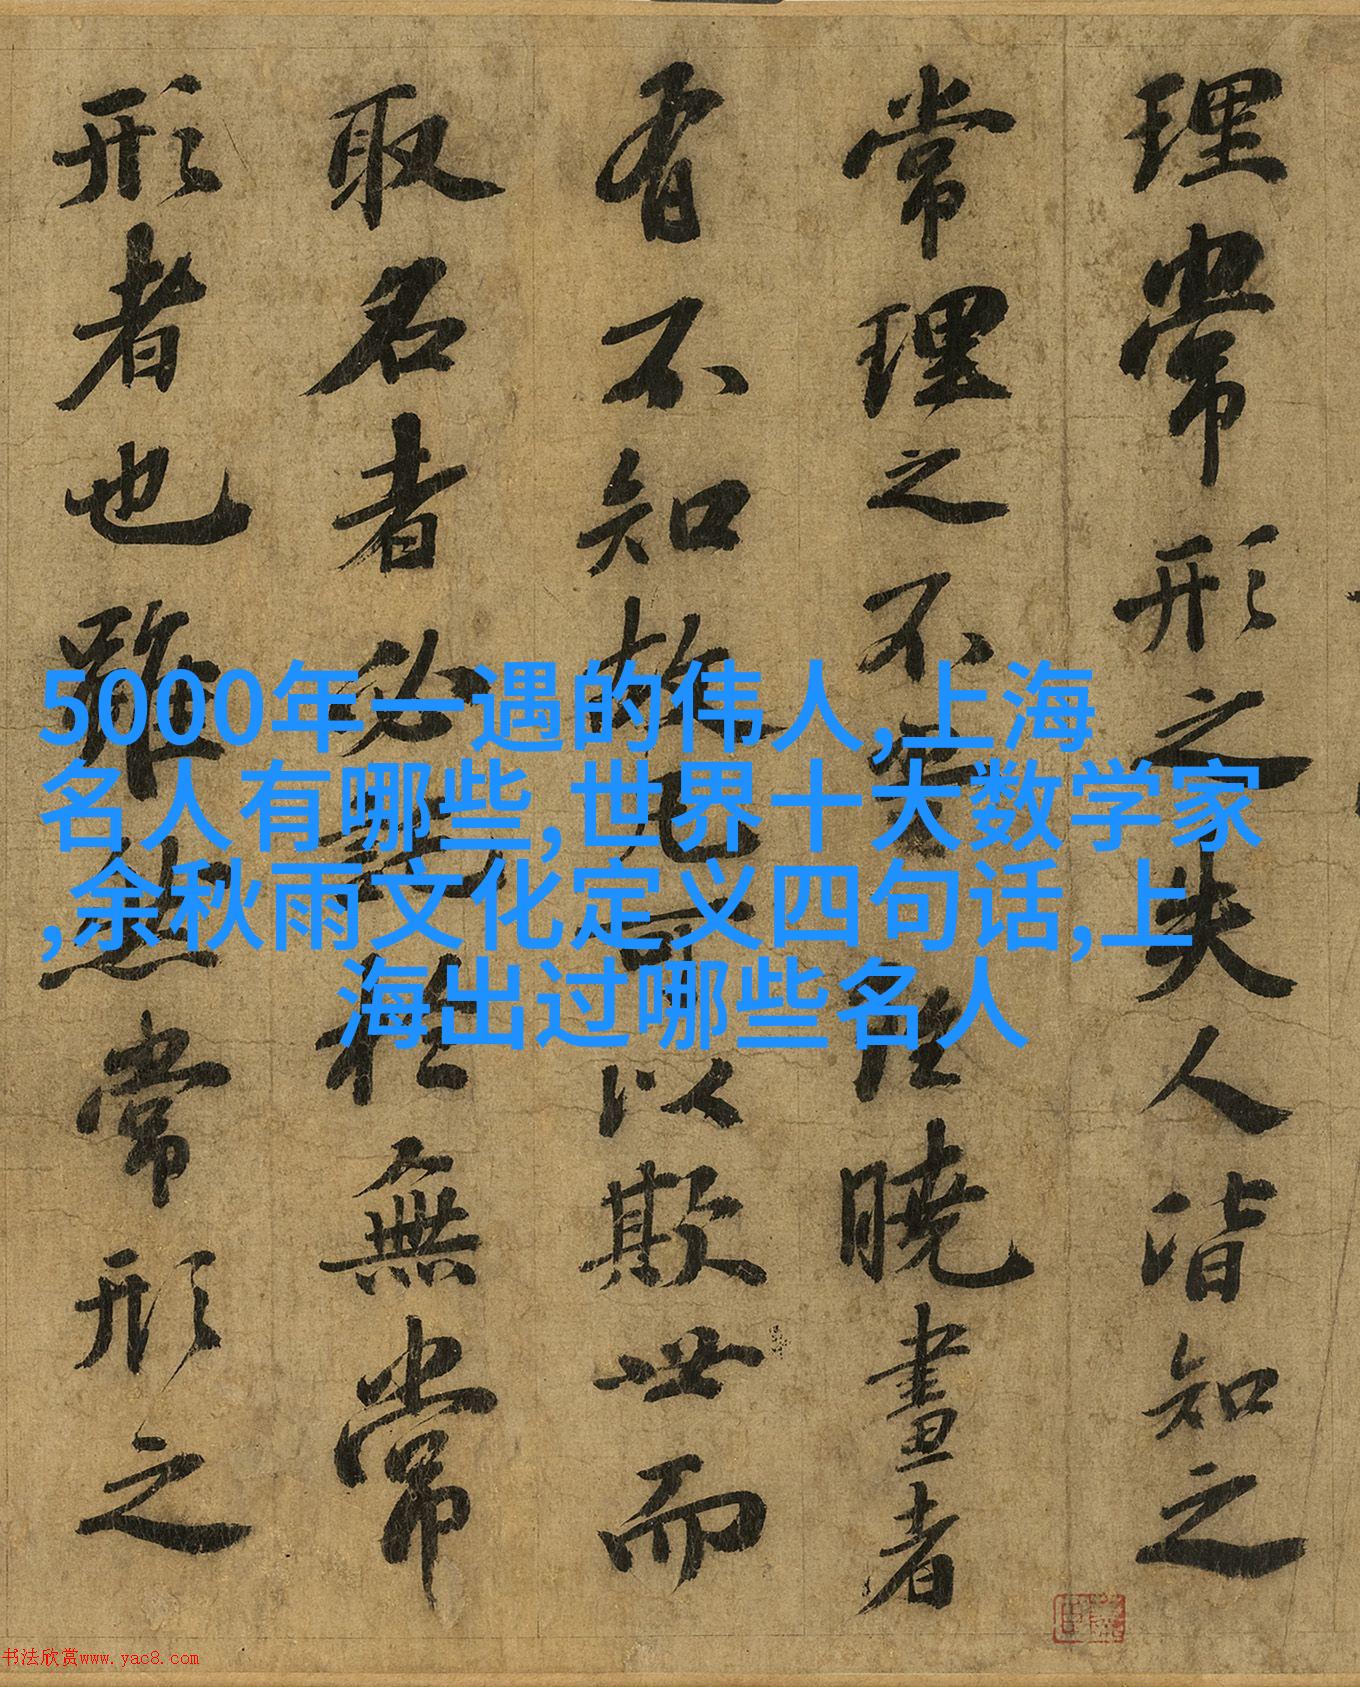 理常形之失人皆知之
常理之不曉畫者
有不知故凡可以欺世而
取名者必於無常
形者也雖然常形之
5000年一遇的伟人,上海
名人有哪些,世界十大数学家
,余秋雨文化定义四句话,上
海出过哪些名人
书法欣赏www.yac8.com